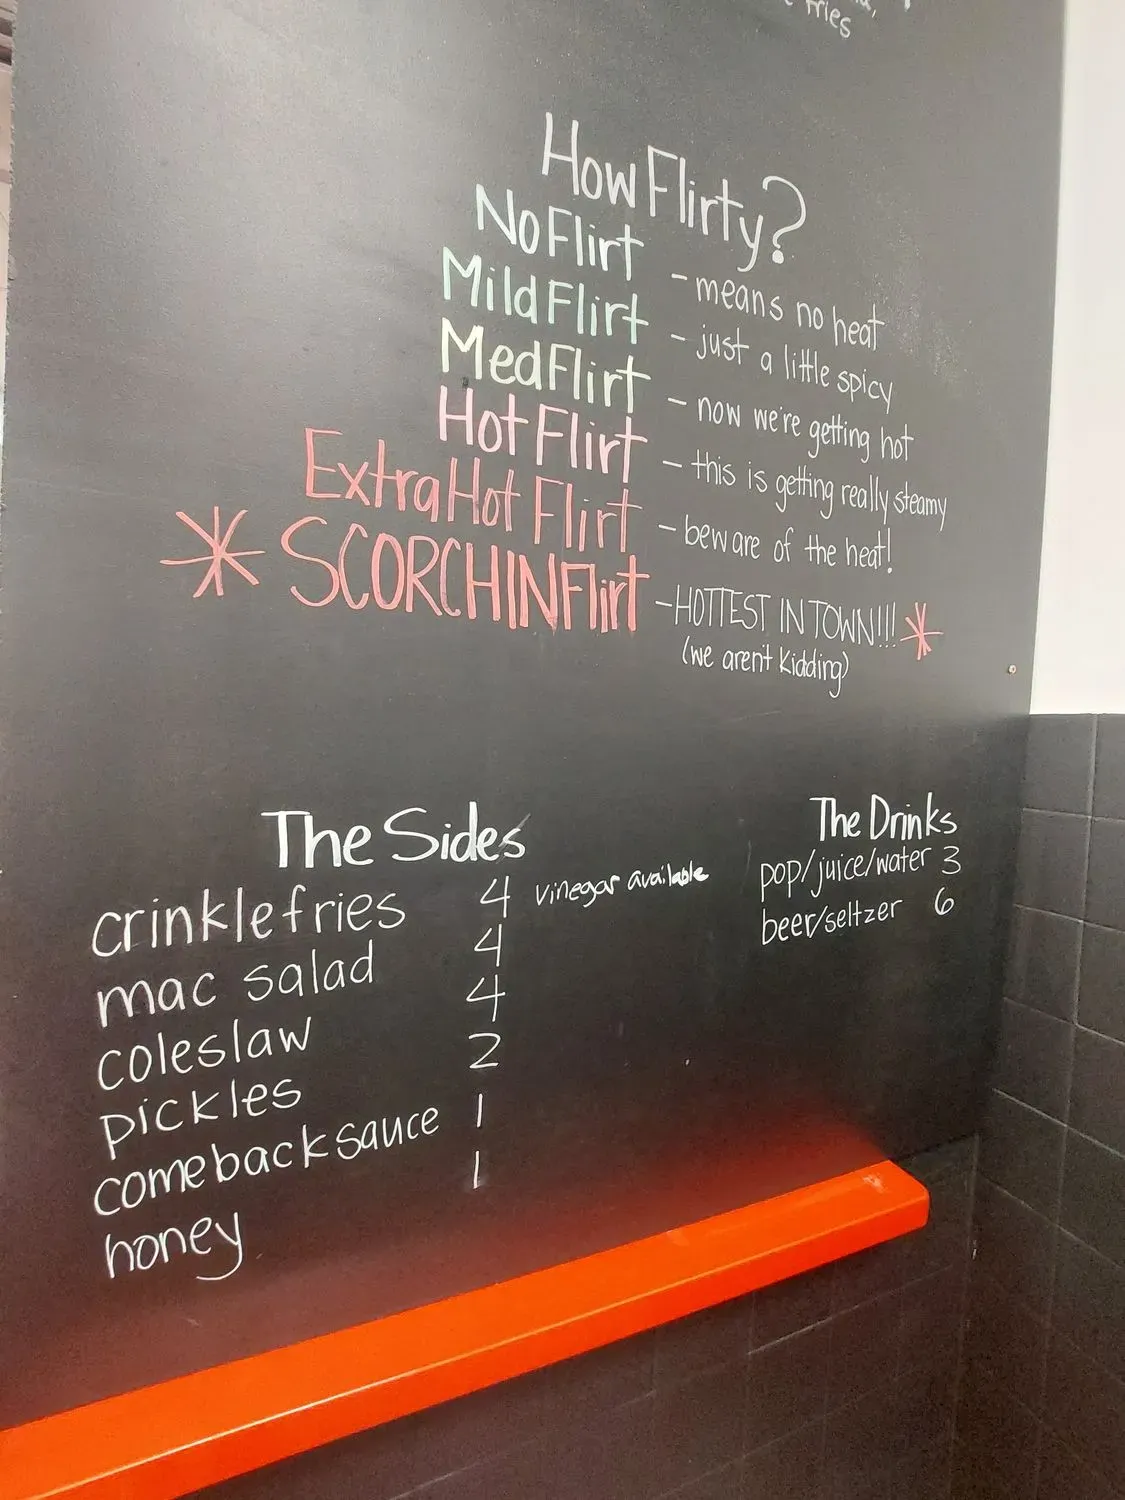 fries
How Flirty?
No Flirt - means no heat
Mild Flirt - just a little spicy
Med Flirt - now we're getting hot
Hot Flirt - this is getting really steamy
Extra Hot Flirt - beware of the heat!
* SCORCHIN Flirt - HOTTEST IN TOWN!!! *
(we aren't kidding)
The Sides
crinkle fries 4 vinegar available
mac salad 4
coleslaw 4
pickles 2
comeback sauce 1
honey 1
The Drinks
pop/juice/water 3
beer/seltzer 6